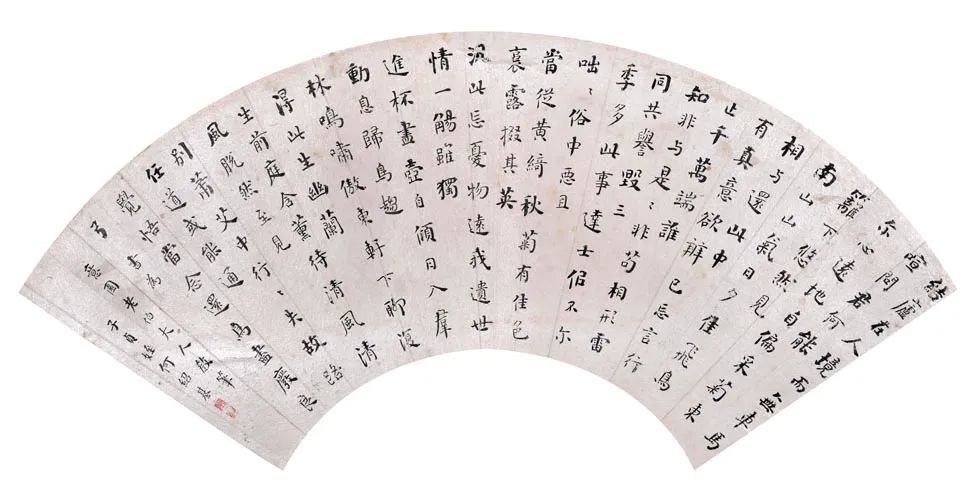 結廬在人境而無車馬
喧問君何能
尔心遠地自偏采菊東
籬下悠然見
南山山氣日夕佳飛鳥
相与還此中
有真意欲辨已忘言行
止千萬端誰
知非与是〻非苟相形雷
同共譽毀三
季多此事達士佀不尔
咄〻俗中惡且
當從黃綺秋菊有佳色
裛露掇其英
汎此忘憂物遠我遺世
情一觴雖獨
進杯盡壺自傾日入羣
動息歸鳥趨
林鳴嘯傲東軒下聊復
得此生幽蘭
生前庭含薰待清風清
風脫然至見
別蕭艾中行〻失故路
任道或能通
覺悟當念還鳥盡廢良
弓書為
意園老伯大人
子貞姪何紹基